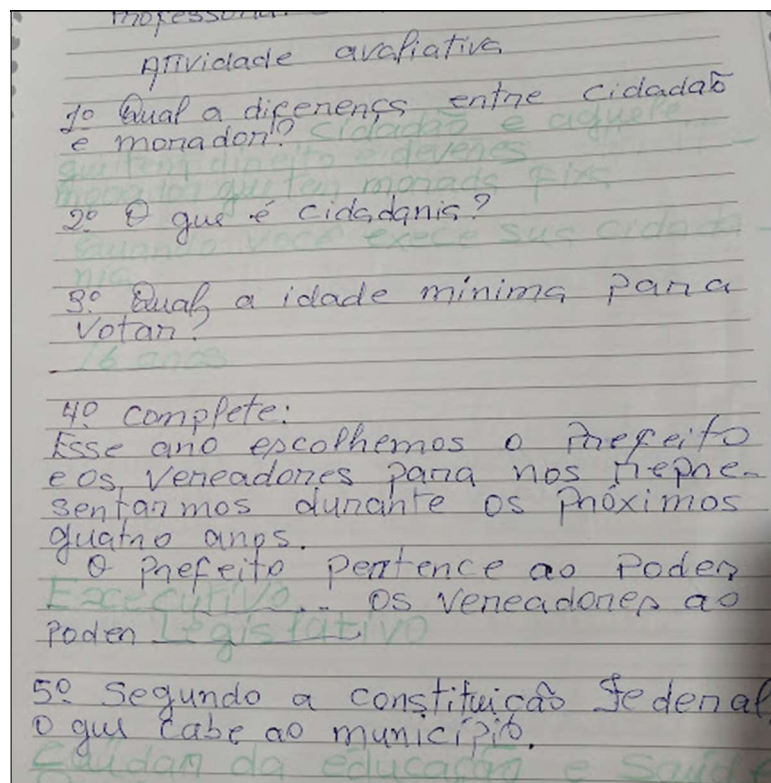 Professora:
Atividade avaliativa
1º Qual a diferença entre cidadão
e morador? Cidadão e aquele
qui tem direito e deveres
morador qui tem morada fixa
2º O que é cidadania?
Quando você exece sua cidada-
nia
3º Qual a idade mínima para
votar?
16 anos
4º complete:
Esse ano escolhemos o prefeito
e os vereadores para nos repre-
sentarmos durante os próximos
quatro anos.
O prefeito pertence ao Poder
Executivo... os vereadores ao
Poder Legislativo
5º Segundo a constituição Federal
O que cabe ao município.
Cuidar da educação e saúde